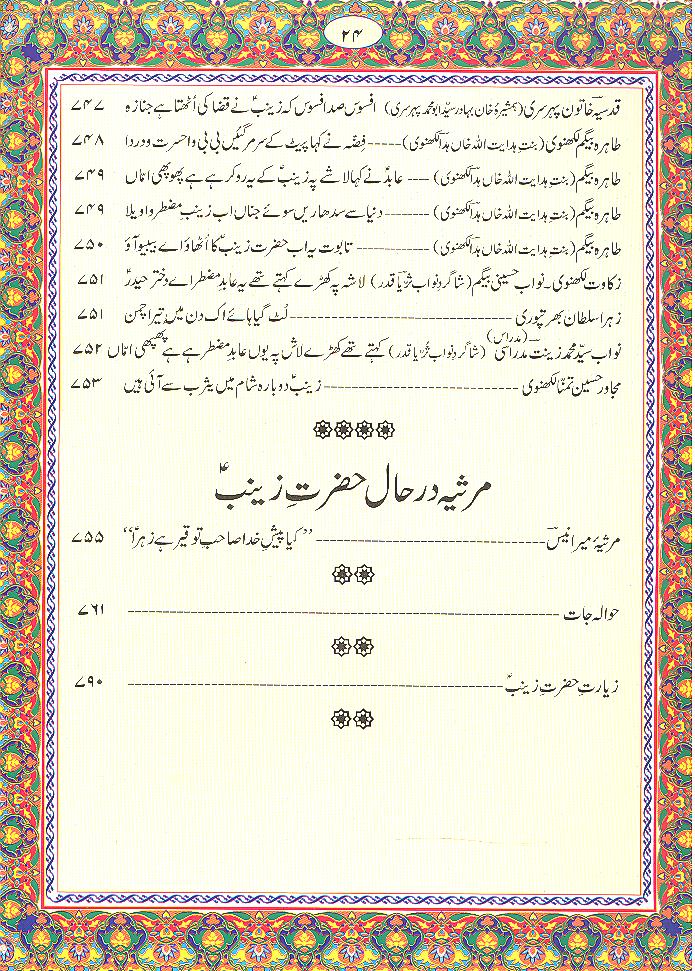 ۲۴
قدسیہ خاتون پہرسری (ہمشیرۂ خان بہادر سیّد ابو محمد پہرسری) افسوس صد افسوس کہ زینبؑ نے قضا کی اُٹھتا ہے جنازہ ۷۴۷
طاہرہ بیگم لکھنوی (بنتِ ہدایت اللہ خاں ہداؔ لکھنوی)-----فِضّہ نے کہا پیٹ کے سر مر گئیں بی بی واحسرت و دردا ۷۴۸
طاہرہ بیگم (بنتِ ہدایت اللہ خاں ہداؔ لکھنوی) --- عابدؑ نے کہا لاشے پہ زینبؑ کے یہ رو کر ہے ہے پھوپھی امّاں ۷۴۹
طاہرہ بیگم (بنتِ ہدایت اللہ خاں ہداؔ لکھنوی) ------- دنیا سے سدھاریں سوئے جناں اب زینبِ مضطر واویلا ۷۴۹
طاہرہ بیگم (بنتِ ہدایت اللہ خاں ہداؔ لکھنوی) ------------ تابوت یہ اب حضرت زینبؑ کا اُٹھاؤ اے بیبیو آؤ ۷۵۰
زکاوت لکھنوی۔ نواب حسینی بیگم (شاگردِ نواب ثریاؔ قدر) لاشہ پہ کھڑے کہتے تھے یہ عابدِ مضطر اے دخترِ حیدرؑ ۷۵۱
زہرا سلطان بھرتپوری ------------------------------ لُٹ گیا ہائے اک دن میں تیرا چمن ۷۵۱
نواب سیّد محمد زینت مدراسی (مدراس) (شاگردِ نواب ثُریّا قدر) کہتے تھے کھڑے لاش پہ یوں عابدِ مضطر ہے ہے پھپھی امّاں ۷۵۲
مجاور حسین تمنّاؔ لکھنوی -------------------------- زینبؑ دوبارہ شام میں یثرب سے آئی ہیں ۷۵۳
مرثیہ در حال حضرتِ زینبؑ
مرثیۂ میر انیسؔ ------------------------------- “کیا پیشِ خدا صاحبِ توقیر ہے زہراؑ” ۷۵۵
حوالہ جات ------------------------------------------------------- ۷۶۱
زیارتِ حضرتِ زینبؑ ------------------------------------------------ ۷۹۰